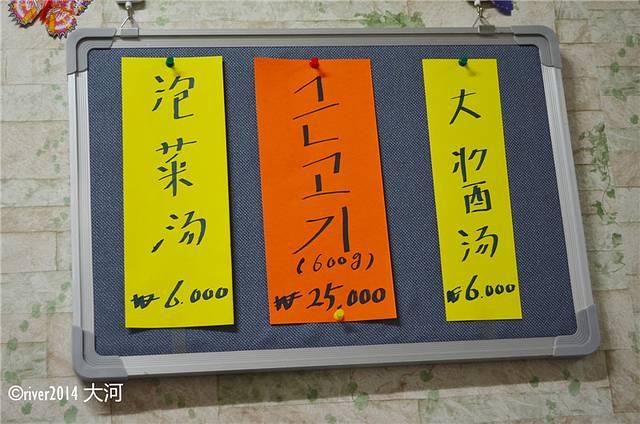 泡菜汤
₩ 6.000
소고기
(600g)
₩ 25.000
大酱汤
₩ 6.000
©river2014 大河